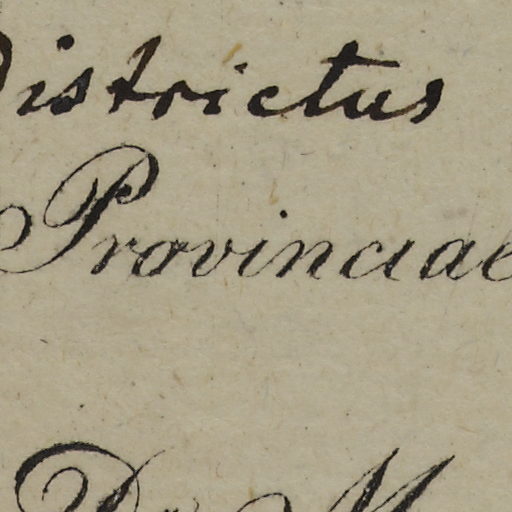 Districtus
Provinciae